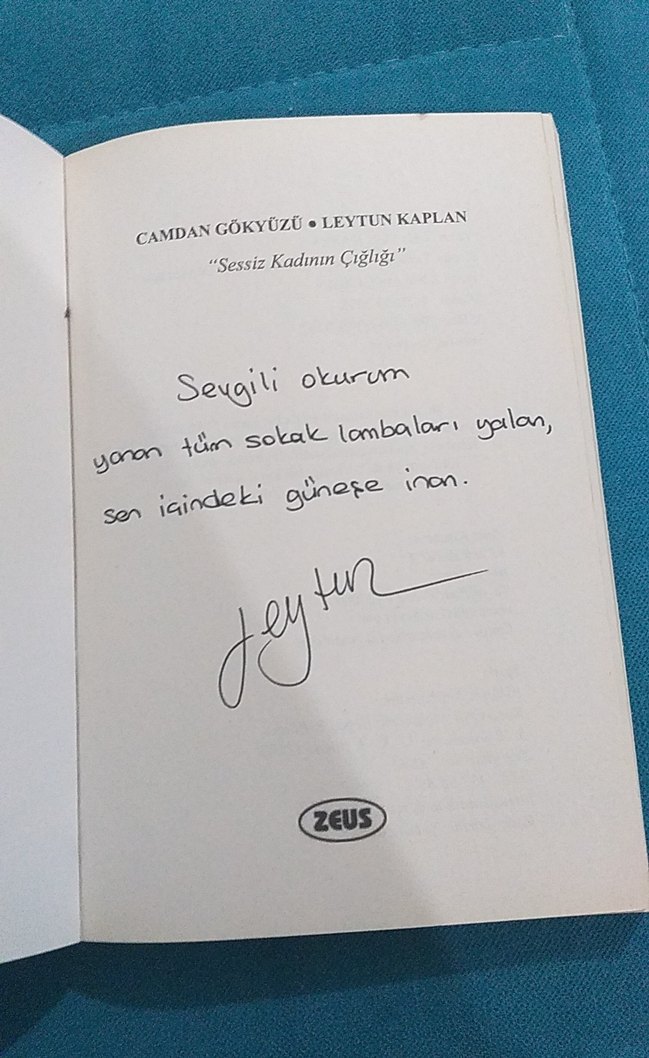 CAMDAN GÖKYÜZÜ ● LEYTUN KAPLAN
“Sessiz Kadının Çığlığı”
Sevgili okurum
yanan tüm sokak lambaları yalan,
sen içindeki güneşe inan.
Leytun
ZEUS